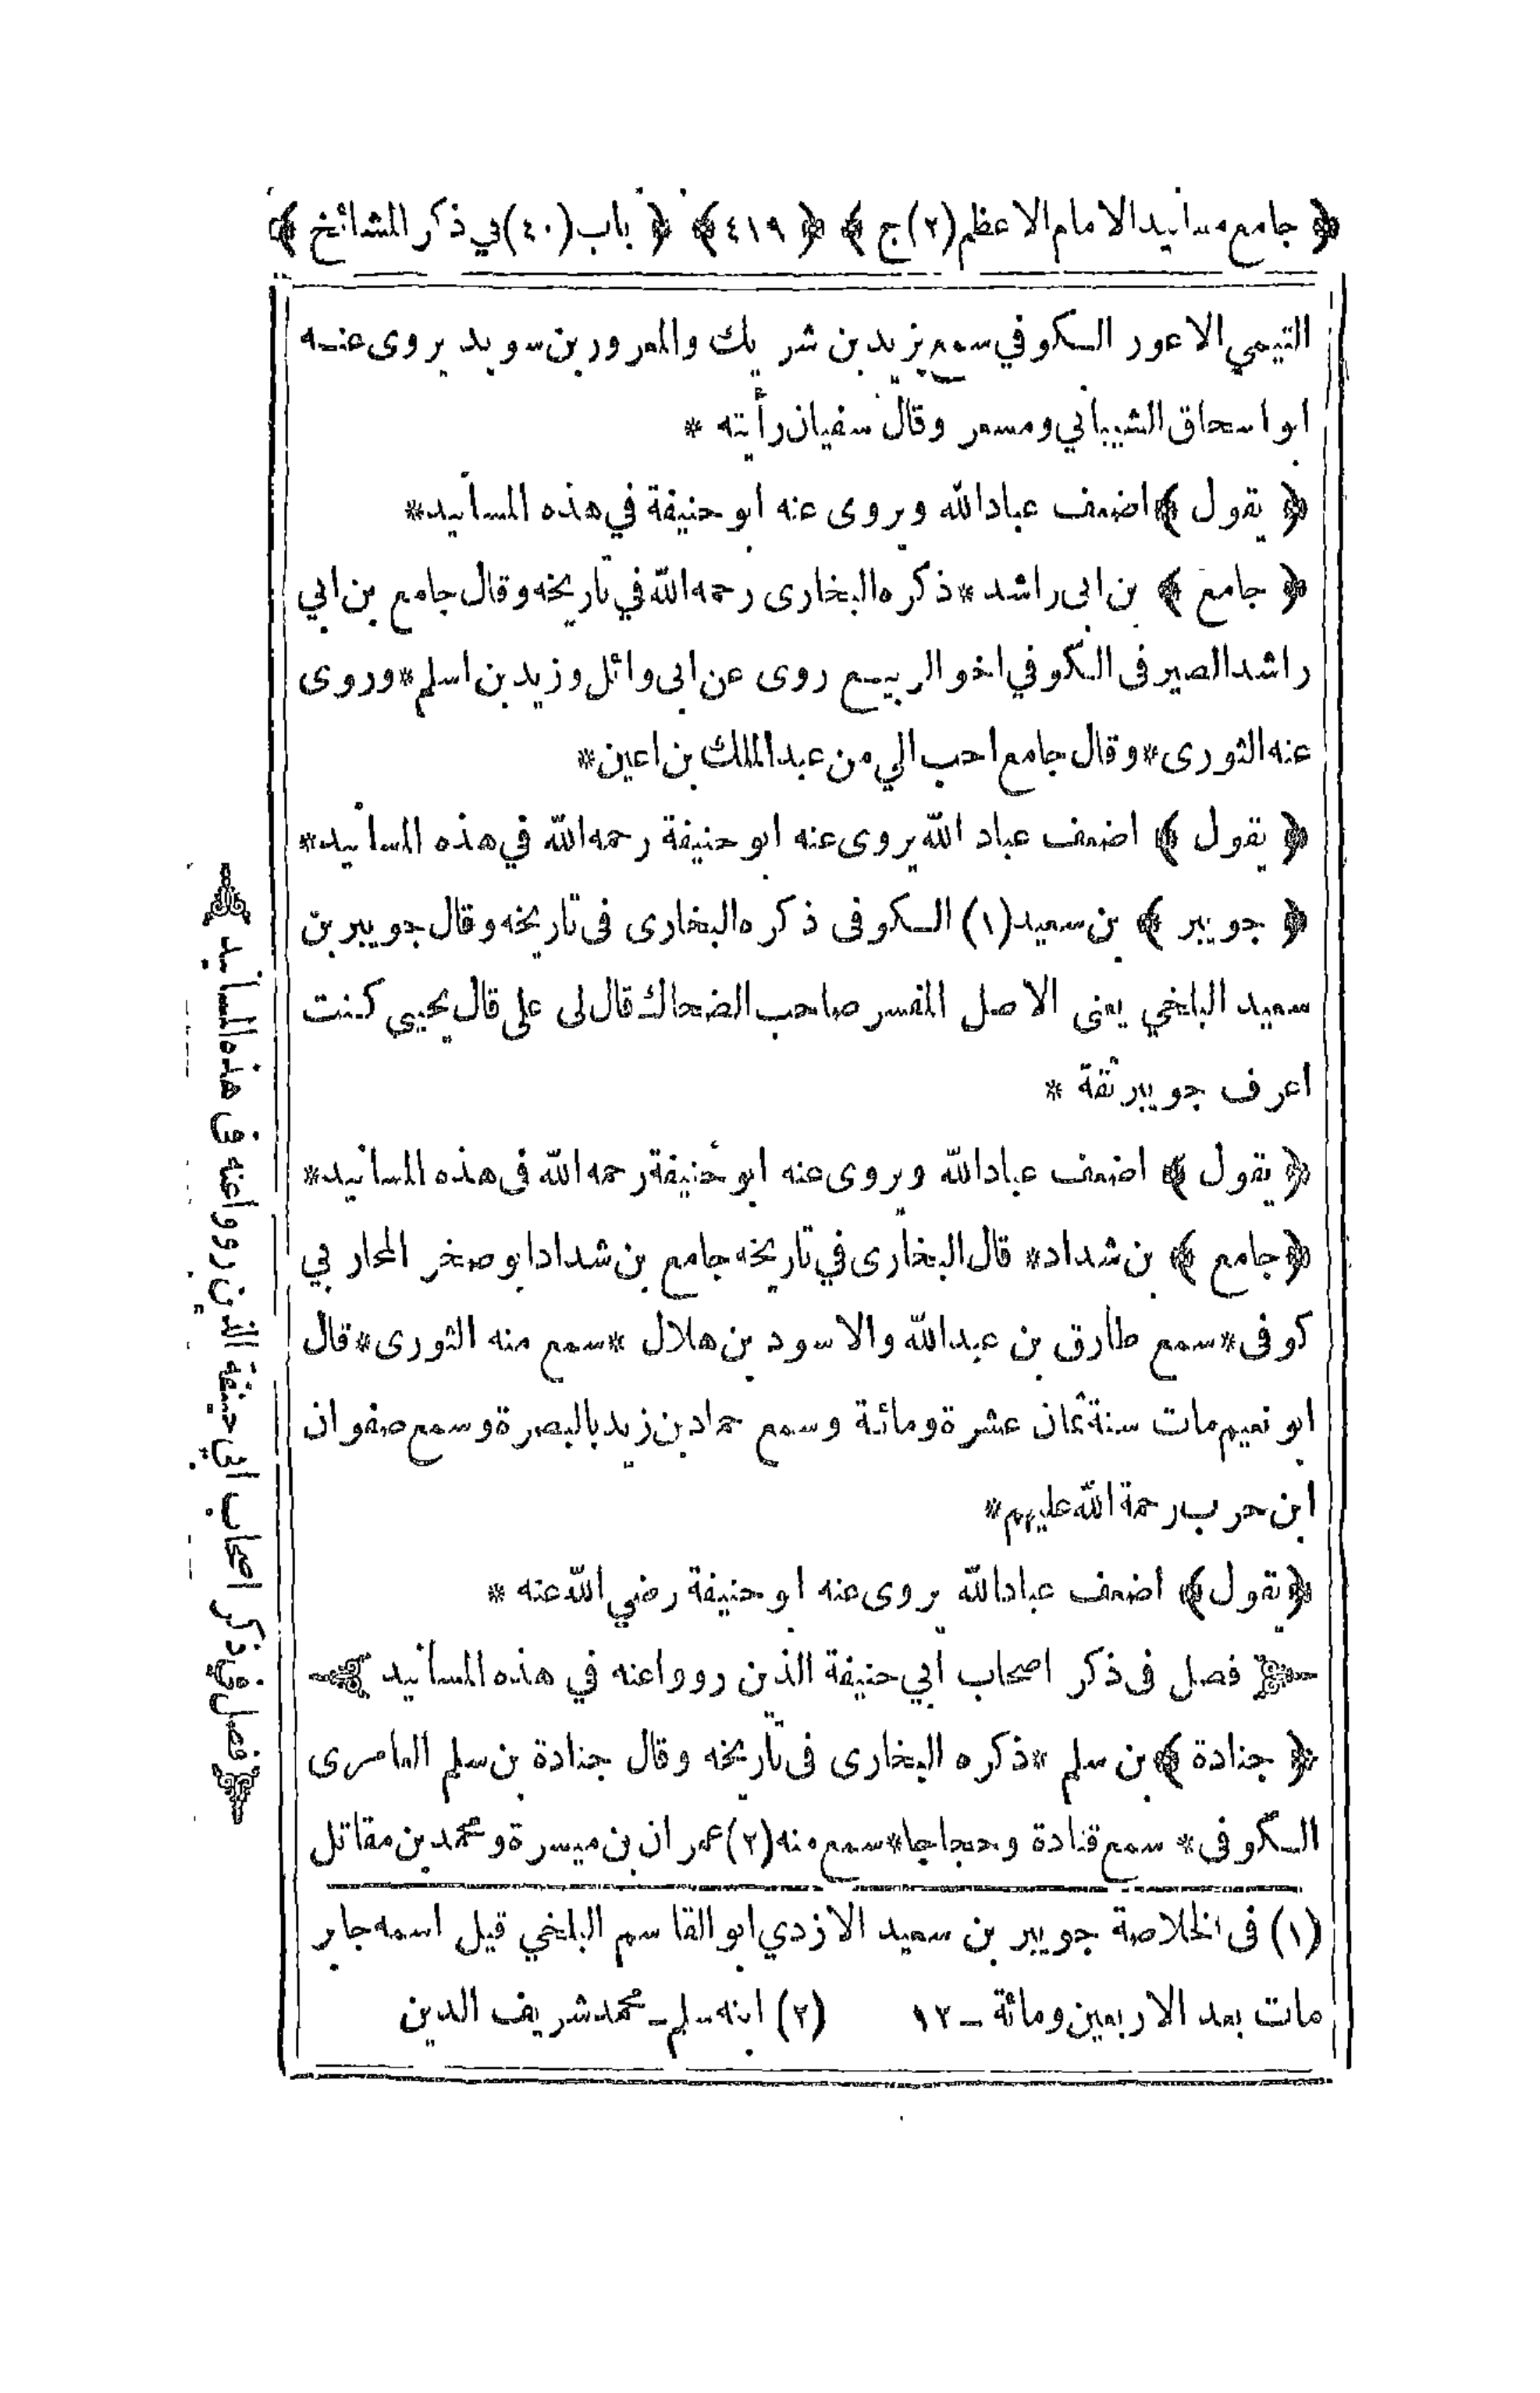 ﴿ جامع مسانيد الامام الاعظم (٢) ج ﴾ ﴿ ٤١٩ ﴾ ﴿ باب (٤٠) في ذكر المشائخ ﴾
التيمي الاعور الكوفي سمع يزيد بن شريك والمعرور بن سويد يروى عنه
ابو اسحاق الشيباني ومسعر وقال سفيان رأيته *
﴿ يقول ﴾ اضعف عباد الله ويروى عنه ابو حنيفة في هذه المسانيد *
﴿ جامع ﴾ بن ابى راشد * ذكره البخارى رحمه الله في تاريخه وقال جامع بن ابي
راشد الصيرفى الكوفي اخو الربيع روى عن ابى وائل وزيد بن اسلم * وروى
عنه الثورى * وقال جامع احب الي من عبد الملك بن اعين *
﴿ يقول ﴾ اضعف عباد الله يروى عنه ابو حنيفة رحمه الله في هذه المسانيد *
﴿ جويبر ﴾ بن سعيد (١) الكوفى ذكره البخارى فى تاريخه وقال جويبر بن
سعيد البلخي يعنى الاصل المفسر صاحب الضحاك قال لى على قال يحيى كنت
اعرف جويبر ثقة *
﴿ يقول ﴾ اضعف عباد الله ويروى عنه ابو حنيفة رحمه الله فى هذه المسانيد *
﴿ جامع ﴾ بن شداد * قال البخارى في تاريخه جامع بن شداد ابو صخر المحاربي
كوفى * سمع طارق بن عبد الله والاسود بن هلال * سمع منه الثورى * قال
ابو نعيم مات سنة ثمان عشرة ومائة وسمع حماد بن زيد بالبصرة وسمع صفوان
ابن حرب رحمة الله عليهم *
﴿ يقول ﴾ اضعف عباد الله يروى عنه ابو حنيفة رضي الله عنه *
فصل فى ذكر اصحاب أبي حنيفة الذين رووا عنه في هذه المسانيد
﴿ جنادة ﴾ بن سلم * ذكره البخارى فى تاريخه وقال جنادة بن سلم العامرى
الكوفى * سمع قتادة وحجاجا * سمع منه (٢) عمران بن ميسرة ومحمد بن مقاتل
(١) فى الخلاصة جويبر بن سعيد الازدي ابو القاسم البلخي قيل اسمه جابر
مات بعد الاربعين ومائة ـ ١٢ (٢) ابنه سلم ـ محمد شريف الدين
﴿ فصل في ذكر اصحاب أبي حنيفة الذين رووا عنه فى هذه المسانيد ﴾